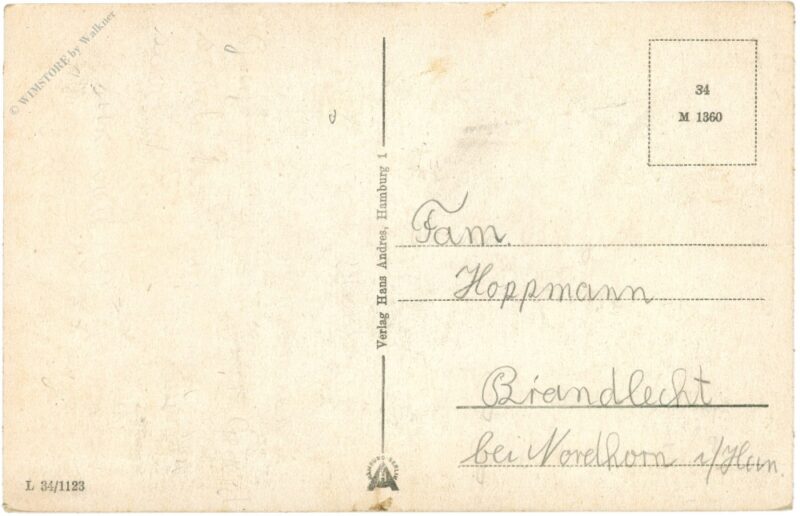 © WIMSTORE by Walkner
34
M 1360
Verlag Hans Andres, Hamburg 1
Fam.
Hoppmann
Brandlecht
bei Nordhorn i/Han.
HAMBURG-BERLIN
L 34/1123